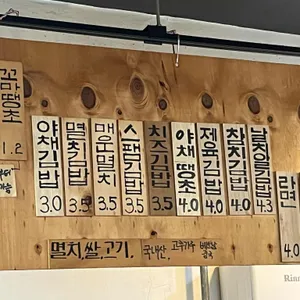 꼬마땡초
1.2
야채김밥
3.0
멸치김밥
3.5
매운멸치
3.5
스팸김밥
3.5
치즈김밥
3.5
야채땡초
4.0
제육김밥
4.0
참치김밥
4.0
날치알김밥
4.3
라면
4.0
멸치,쌀,고기. 국내산. 고추가루